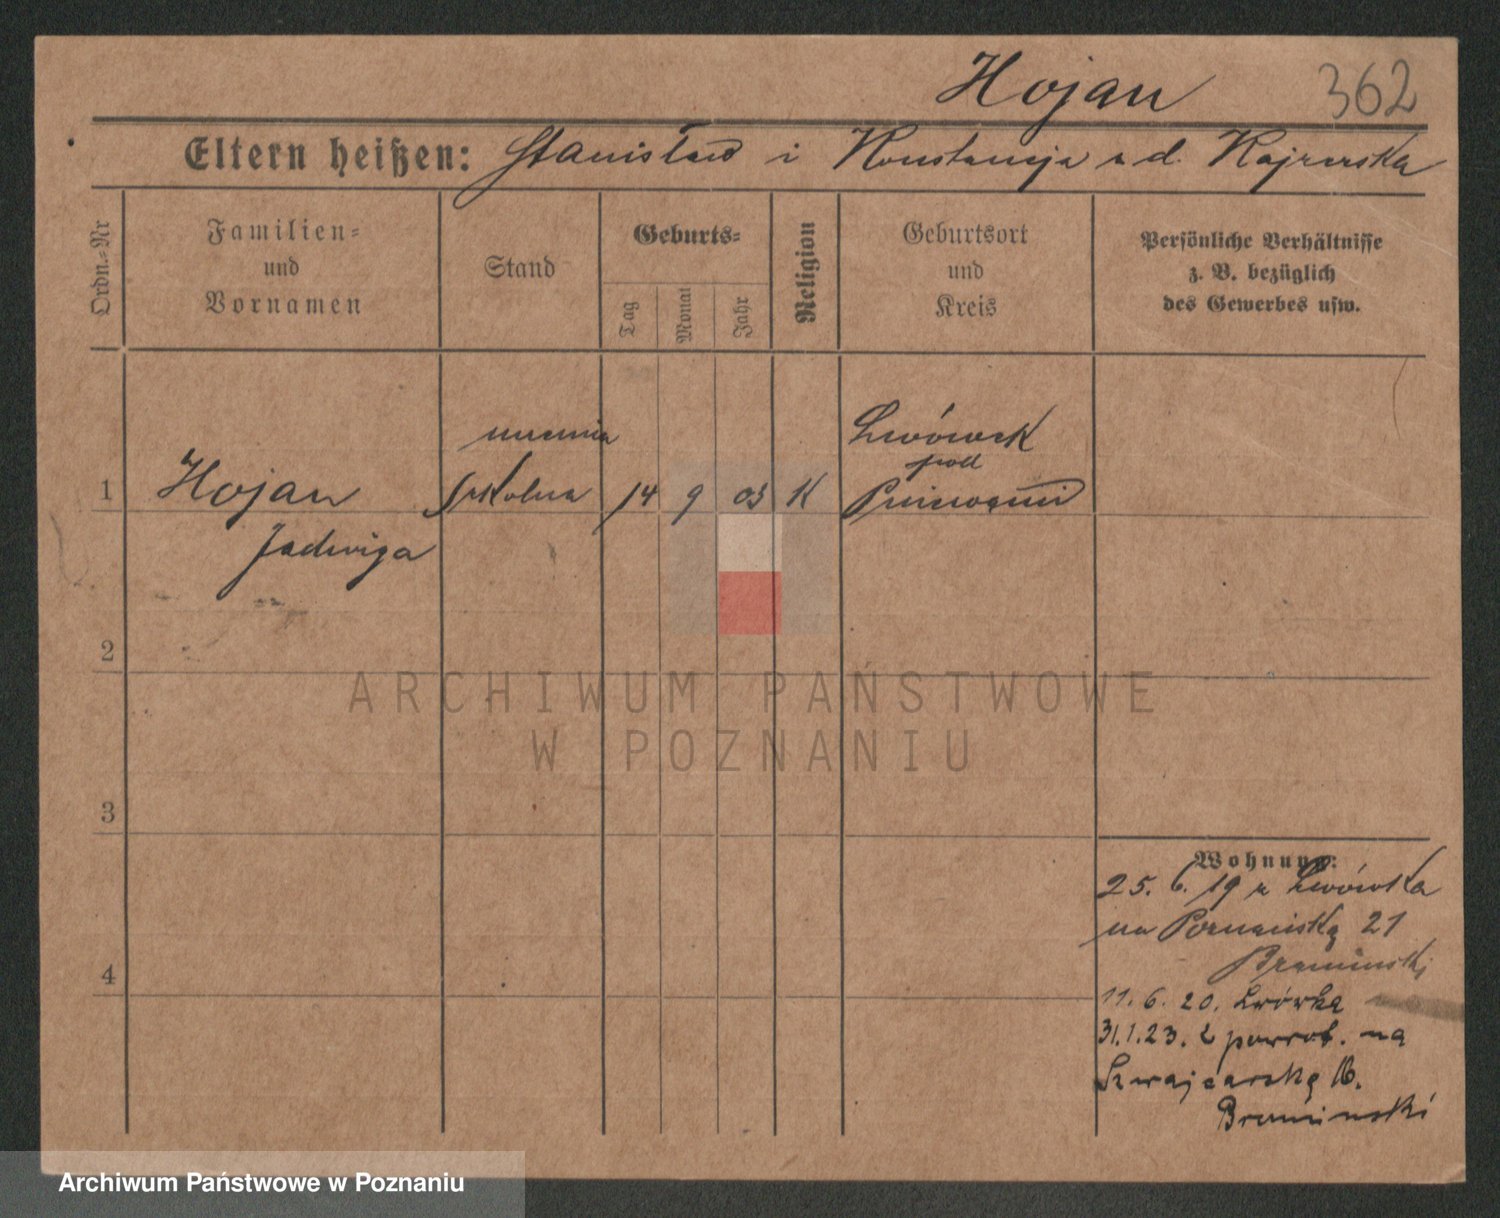 Hojan 362
Eltern heißen: Stanisław i Konstancja z d. Kajzerska
Ordn.-Nr
Familien-
und
Vornamen
Stand
Geburts-
Tag
Monat
Jahr
Religion
Geburtsort
und
Kreis
Persönliche Verhältnisse
z. B. bezüglich
des Gewerbes usw.
1
Hojan
Jadwiga
uczenica
szkolna
14 9 03 K
Lwówek
pod
Pniewami
2
ARCHIWUM PAŃSTWOWE
W POZNANIU
3
4
Wohnung:
25. 6. 19 z Lwówka
na Poznańską 21
11. 6. 20. Lwówka
31. 1. 23. z powrot. na
Szwajcarską 16.
Archiwum Państwowe w Poznaniu